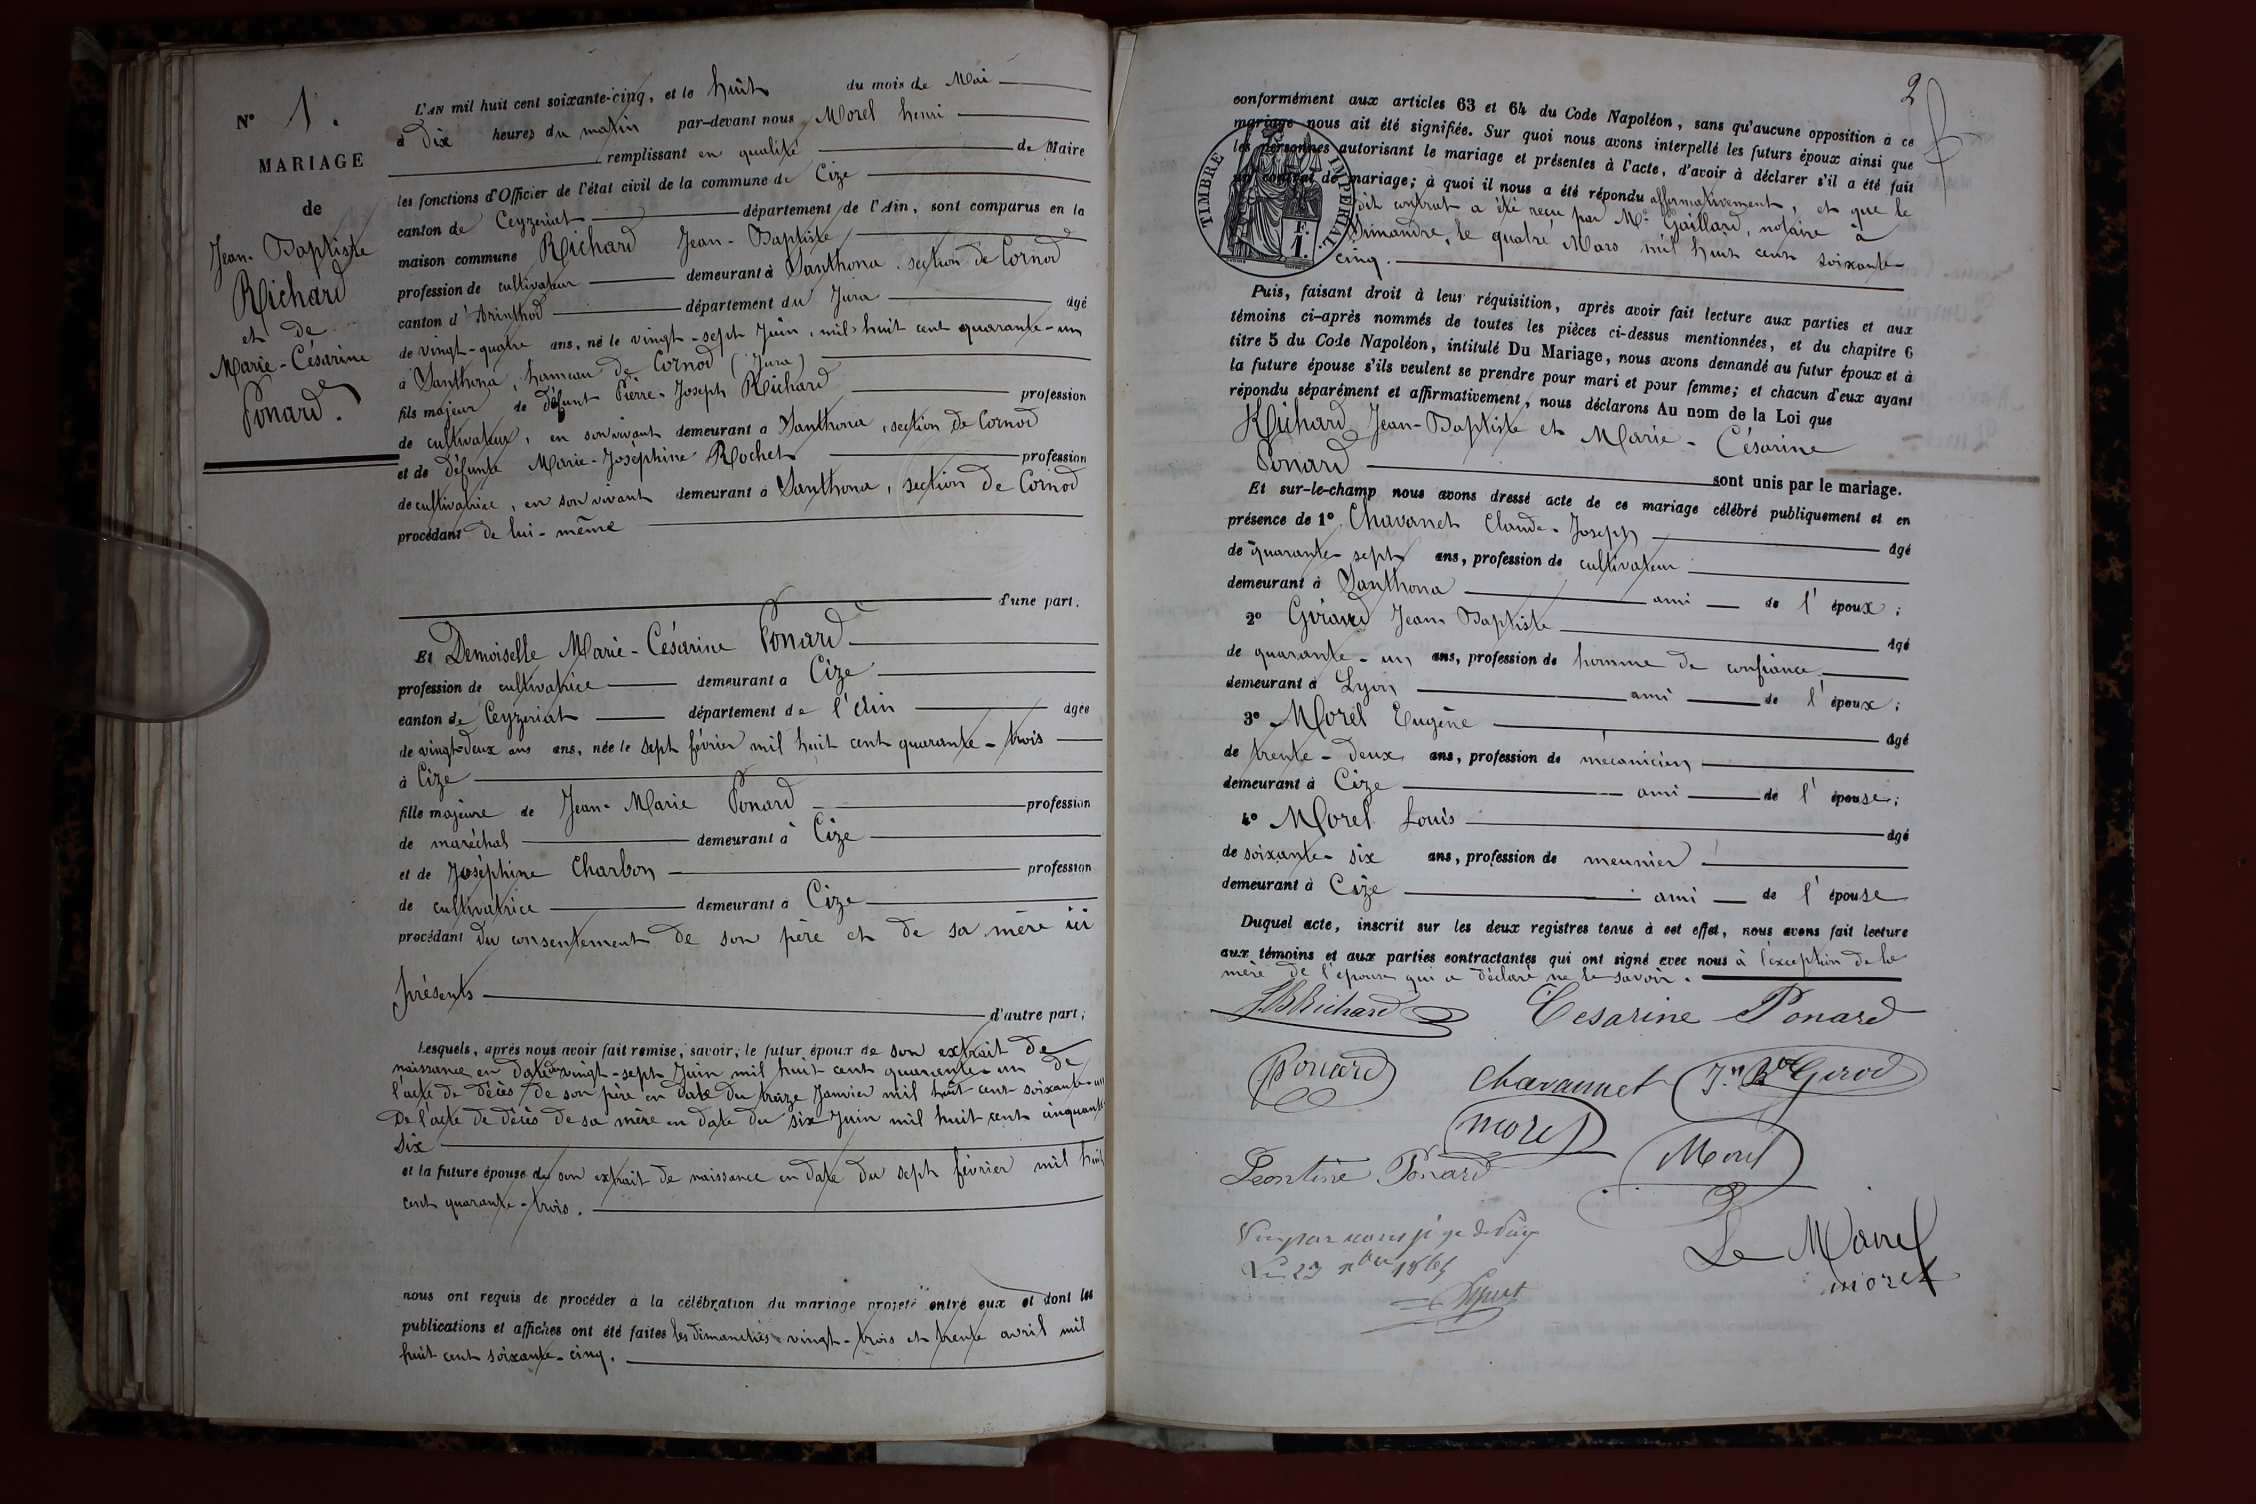 N° 1.
MARIAGE
de
Jean-Baptiste
Richard
et de
Marie-Césarine
Ponard.
L'AN mil huit cent soixante-cinq, et le huit du mois de Mai
à Dix heures du matin par-devant nous Morel henri
remplissant en qualité de Maire
les fonctions d'Officier de l'état civil de la commune de Cize
canton de Ceyzeriat département de l'Ain, sont comparus en la
maison commune Richard Jean-Baptiste
profession de cultivateur demeurant à Santhona, section de Cornod
canton d'Arinthod département du Jura âgé
de vingt-quatre ans, né le vingt-sept Juin, mil huit cent quarante-un
à Santhona, hameau de Cornod (Jura)
fils majeur de défunt Pierre-Joseph Richard profession
de cultivateur, en son vivant demeurant à Santhona, section de Cornod
et de défunte Marie-Joséphine Rochet profession
de cultivatrice, en son vivant demeurant à Santhona, section de Cornod
procédant de lui-même
d'une part.
Et Demoiselle Marie-Césarine Ponard
profession de cultivatrice demeurant à Cize
canton de Ceyzeriat département de l'Ain âgée
de vingt-deux ans ans, née le sept février mil huit cent quarante-trois
à Cize
fille majeure de Jean-Marie Ponard profession
de maréchal demeurant à Cize
et de Joséphine Charbon profession
de cultivatrice demeurant à Cize
procédant du consentement de son père et de sa mère ici
présents
d'autre part;
Lesquels, après nous avoir fait remise, savoir; le futur époux de son extrait de
naissance en date du vingt-sept Juin mil huit cent quarante-un de
l'acte de décès de son père en date du treize Janvier mil huit cent soixante-un
De l'acte de décès de sa mère en date du six Juin mil huit cent cinquante
six
et la future épouse de son extrait de naissance en date du sept février mil huit
cent quarante-trois.
nous ont requis de procéder à la célébration du mariage projeté entre eux et dont les
publications et affiches ont été faites les Dimanches vingt-trois et trente avril mil
huit cent soixante-cinq.
2
conformément aux articles 63 et 64 du Code Napoléon, sans qu'aucune opposition à ce
mariage nous ait été signifiée. Sur quoi nous avons interpellé les futurs époux ainsi que
les personnes autorisant le mariage et présentes à l'acte, d'avoir à déclarer s'il a été fait
un contrat de mariage; à quoi il nous a été répondu affirmativement, et que le
dit contrat a été reçu par Me Gaillard, notaire à
Simandre, le quatre Mars mil huit cent soixante-
cinq.
TIMBRE IMPÉRIAL.
1 F.
Puis, faisant droit à leur réquisition, après avoir fait lecture aux parties et aux
témoins ci-après nommés de toutes les pièces ci-dessus mentionnées, et du chapitre 6
titre 5 du Code Napoléon, intitulé Du Mariage, nous avons demandé au futur époux et à
la future épouse s'ils veulent se prendre pour mari et pour femme; et chacun d'eux ayant
répondu séparément et affirmativement, nous déclarons Au nom de la Loi que
Richard Jean-Baptiste et Marie-Césarine
Ponard sont unis par le mariage.
Et sur-le-champ nous avons dressé acte de ce mariage célébré publiquement et en
présence de 1° Chavanet Claude-Joseph âgé
de quarante-sept ans, profession de cultivateur
demeurant à Santhona ami de l'époux;
2° Girard Jean Baptiste âgé
de quarante-un ans, profession de homme de confiance
demeurant à Lyon ami de l'époux;
3° Morel Eugène âgé
de trente-deux ans, profession de mécanicien
demeurant à Cize ami de l'épouse;
4° Morel Louis âgé
de soixante-six ans, profession de meunier
demeurant à Cize ami de l'épouse
Duquel acte, inscrit sur les deux registres tenus à cet effet, nous avons fait lecture
aux témoins et aux parties contractantes qui ont signé avec nous à l'exception de la
mère de l'épouse qui a déclaré ne le savoir.
JB Richard Cesarine Ponard
Ponard Chavannet Jn Bte Girod
morel
Leontine Ponard Morel
Vu par nous juge de Paix
Le 23 1865
Le Maire
morel